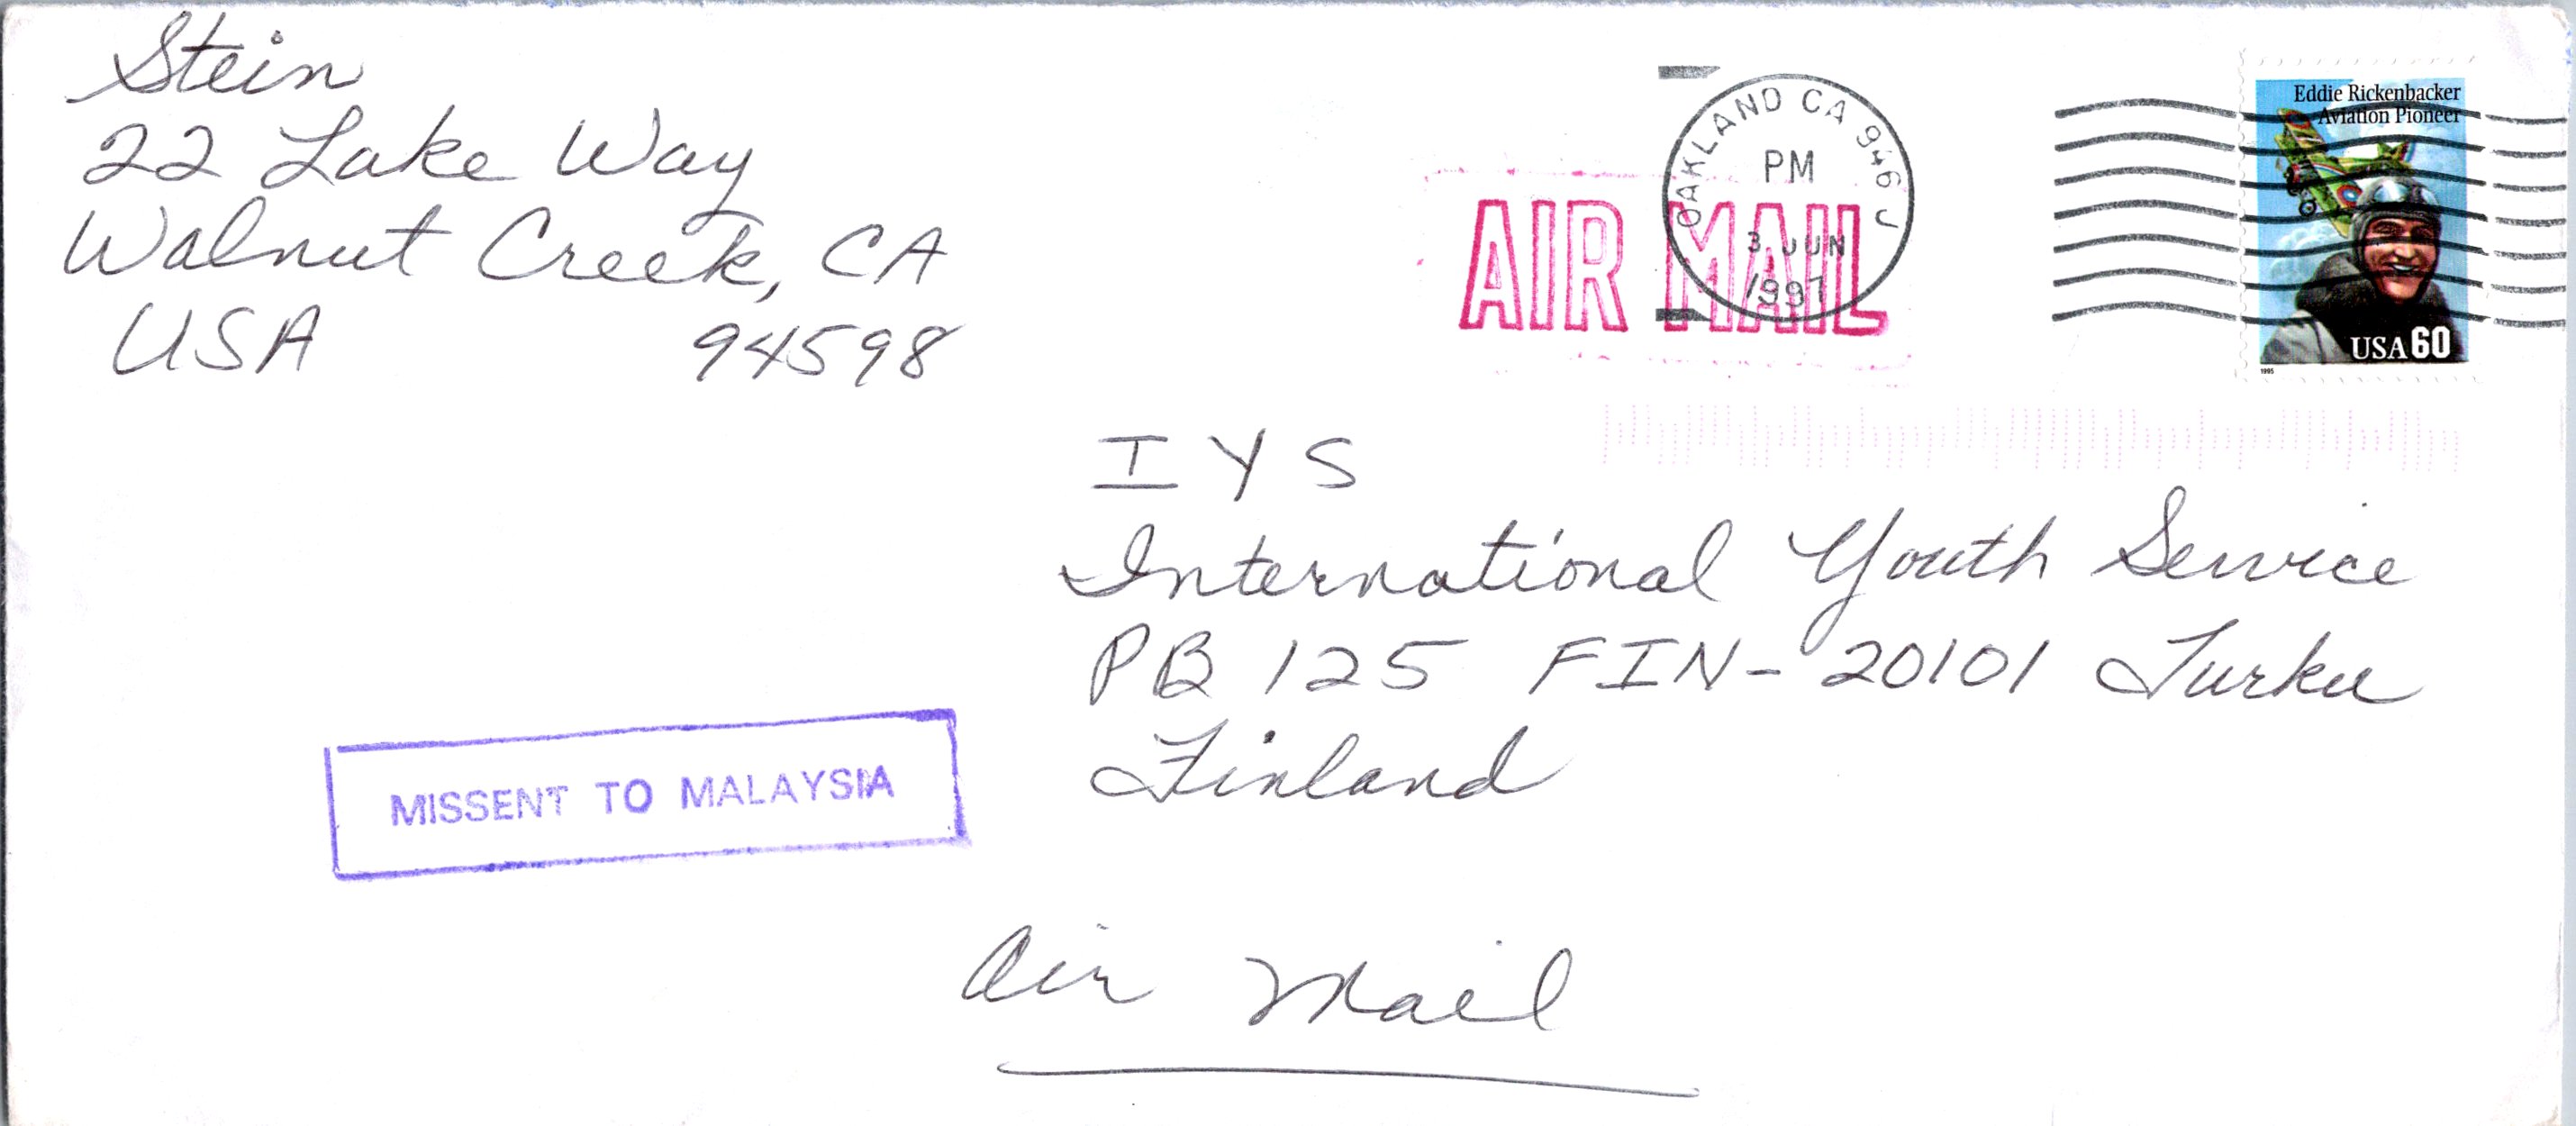 Stein
22 Lake Way
Walnut Creek, CA
USA 94598
AIR MAIL
OAKLAND CA 946 J
PM
3 JUN
1997
Eddie Rickenbacker
Aviation Pioneer
USA 60
1995
I Y S
International Youth Service
PB 125 FIN-20101 Turku
Finland
MISSENT TO MALAYSIA
Air Mail